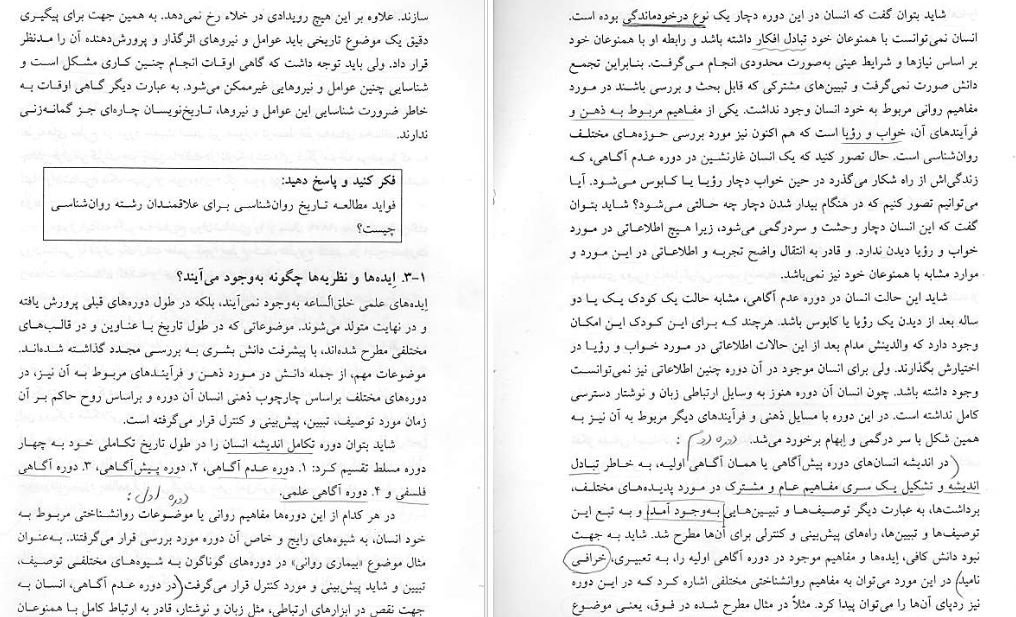 سازند. علاوه بر این هیچ رویدادی در خلاء رخ نمی‌دهد. به همین جهت برای پیگیری
دقیق یک موضوع تاریخی باید عوامل و نیروهای اثرگذار و پرورش‌دهنده آن را مدنظر
قرار داد. ولی باید توجه داشت که گاهی اوقات انجام چنین کاری مشکل است و
شناسایی چنین عوامل و نیروهایی غیرممکن می‌شود. به عبارت دیگر گاهی اوقات به
خاطر ضرورت شناسایی این عوامل و نیروها، تاریخ‌نویسان چاره‌ای جز گمانه‌زنی
ندارند.
فکر کنید و پاسخ دهید:
فواید مطالعه تاریخ روان‌شناسی برای علاقمندان رشته روان‌شناسی
چیست؟
۳-۱. ایده‌ها و نظریه‌ها چگونه به‌وجود می‌آیند؟
ایده‌های علمی خلق‌الساعه به‌وجود نمی‌آیند، بلکه در طول دوره‌های قبلی پرورش یافته
و در نهایت متولد می‌شوند. موضوعاتی که در طول تاریخ با عناوین و در قالب‌های
مختلفی مطرح شده‌اند، با پیشرفت دانش بشری به بررسی مجدد گذاشته شده‌اند.
موضوعات مهم، از جمله دانش در مورد ذهن و فرآیندهای مربوط به آن نیز، در
دوره‌های مختلف براساس چارچوب ذهنی انسان آن دوره و براساس روح حاکم بر آن
زمان مورد توصیف، تبیین، پیش‌بینی و کنترل قرار می‌گرفته است.
شاید بتوان دوره تکامل اندیشه انسان را در طول تاریخ تکاملی خود به چهار
دوره مسلط تقسیم کرد: ۱. دوره عدم آگاهی، ۲. دوره پیش‌آگاهی، ۳. دوره آگاهی
فلسفی و ۴. دوره آگاهی علمی. دوره اول:
در هر کدام از این دوره‌ها مفاهیم روانی یا موضوعات روانشناختی مربوط به
خود انسان، به شیوه‌های رایج و خاص آن دوره مورد بررسی قرار می‌گرفتند. به‌عنوان
مثال موضوع «بیماری روانی» در دوره‌های گوناگون به شیوه‌های مختلفی توصیف،
تبیین و شاید پیش‌بینی و مورد کنترل قرار می‌گرفت (در دوره عدم آگاهی، انسان به
جهت نقص در ابزارهای ارتباطی، مثل زبان و نوشتار، قادر به ارتباط کامل با همنوعان
شاید بتوان گفت که انسان در این دوره دچار یک نوع درخودماندگی بوده است.
انسان نمی‌توانست با همنوعان خود تبادل افکار داشته باشد و رابطه او با همنوعان خود
بر اساس نیازها و شرایط عینی به‌صورت محدودی انجام می‌گرفت. بنابراین تجمع
دانش صورت نمی‌گرفت و تبیین‌های مشترکی که قابل بحث و بررسی باشند در مورد
مفاهیم روانی مربوط به خود انسان وجود نداشت. یکی از مفاهیم مربوط به ذهن و
فرآیندهای آن، خواب و رؤیا است که هم اکنون نیز مورد بررسی حوزه‌های مختلف
روان‌شناسی است. حال تصور کنید که یک انسان غارنشین در دوره عدم آگاهی، که
زندگی‌اش از راه شکار می‌گذرد در حین خواب دچار رؤیا یا کابوس می‌شود. آیا
می‌توانیم تصور کنیم که در هنگام بیدار شدن دچار چه حالتی می‌شود؟ شاید بتوان
گفت که این انسان دچار وحشت و سردرگمی می‌شود، زیرا هیچ اطلاعاتی در مورد
خواب و رؤیا دیدن ندارد. و قادر به انتقال واضح تجربه و اطلاعاتی در این مورد و
موارد مشابه با همنوعان خود نیز نمی‌باشد.
شاید این حالت انسان در دوره عدم آگاهی، مشابه حالت یک کودک یک یا دو
ساله بعد از دیدن یک رؤیا یا کابوس باشد. هرچند که برای این کودک این امکان
وجود دارد که والدینش مدام بعد از این حالات اطلاعاتی در مورد خواب و رؤیا در
اختیارش بگذارند. ولی برای انسان موجود در آن دوره چنین اطلاعاتی نیز نمی‌توانست
وجود داشته باشد. چون انسان آن دوره هنوز به وسایل ارتباطی زبان و نوشتار دسترسی
کامل نداشته است. در این دوره با مسایل ذهنی و فرآیندهای دیگر مربوط به آن نیز به
همین شکل با سر درگمی و ابهام برخورد می‌شد. دوره دوم:
(در اندیشه انسان‌های دوره پیش‌آگاهی یا همان آگاهی اولیه، به خاطر تبادل
اندیشه و تشکیل یک سری مفاهیم عام و مشترک در مورد پدیده‌های مختلف،
برداشت‌ها، به عبارت دیگر توصیف‌ها و تبیین‌هایی به‌وجود آمد و به تبع این
توصیف‌ها و تبیین‌ها، راه‌های پیش‌بینی و کنترلی برای آن‌ها مطرح شد. شاید به جهت
نبود دانش کافی، ایده‌ها و مفاهیم موجود در دوره آگاهی اولیه را، به تعبیری، خرافی
نامید) در این مورد می‌توان به مفاهیم روانشناختی مختلفی اشاره کرد که در این دوره
نیز ردپای آن‌ها را می‌توان پیدا کرد. مثلاً در مثال مطرح شده در فوق، یعنی موضوع